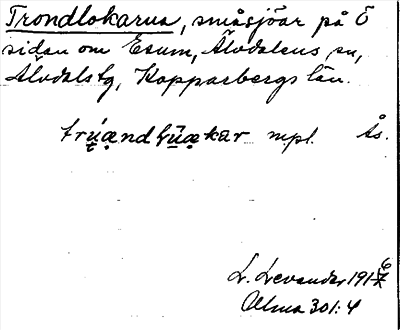 Trondlokarna, småsjöar på Ö
sidan om Esum, Älvdalens sn,
Älvdalstg, Kopparbergs län.
mpl. Ås.
L. Levander 1916
Alma 301:4